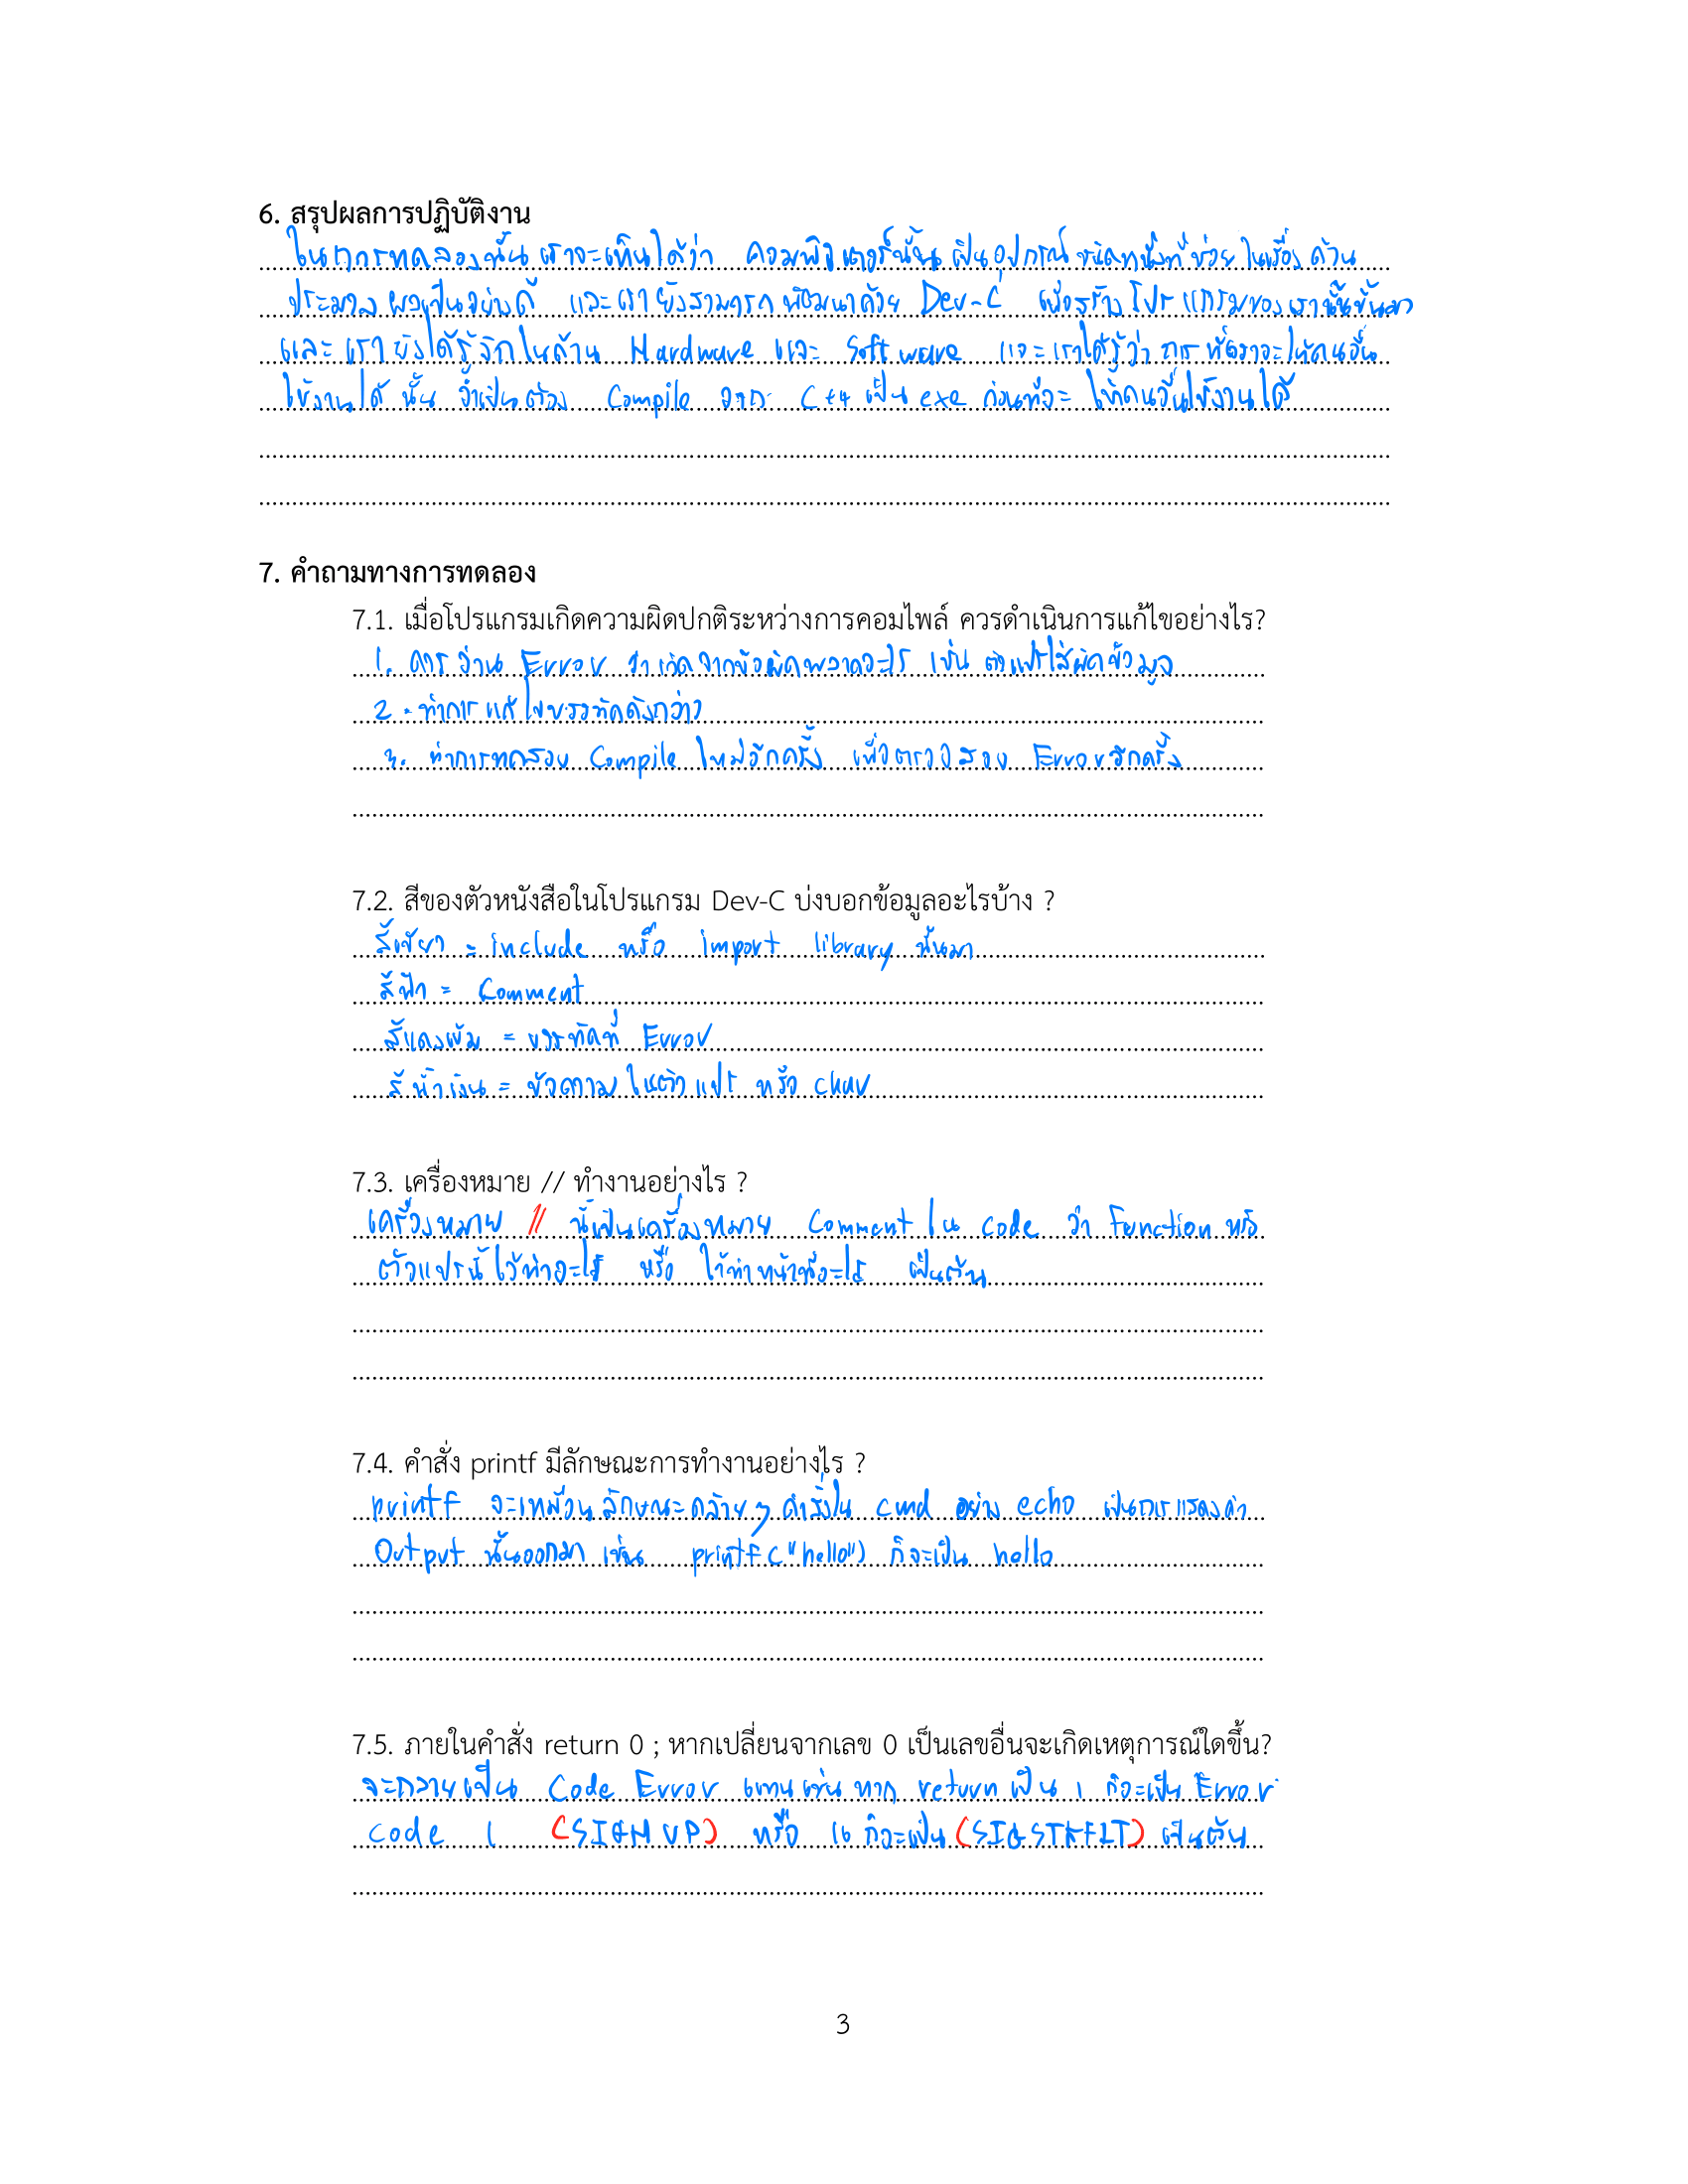 6. สรุปผลการปฏิบัติงาน
ในการทดลองนั้น เราจะเห็นได้ว่า คอมพิวเตอร์นั้น เป็นอุปกรณ์ชนิดหนึ่งที่ช่วยในเรื่องด้าน
ประมวลผลเป็นอย่างดี และเรายังสามารถพัฒนาด้วย Dev-C เพื่อสร้างโปรแกรมของเรานั้นขึ้นมา
และเรายังได้รู้จักในด้าน Hardware และ Software และเราได้รู้ว่า การที่เราจะให้คนอื่น
ใช้งานได้นั้น จำเป็นต้อง Compile จาก C++ เป็น exe ก่อนที่จะให้คนอื่นใช้งานได้
7. คำถามทางการทดลอง
7.1. เมื่อโปรแกรมเกิดความผิดปกติระหว่างการคอมไพล์ ควรดำเนินการแก้ไขอย่างไร?
1. ควรอ่าน Error ว่าเกิดจากข้อผิดพลาดอะไร เช่น ตัวแปรใส่ผิดข้อมูล
2. ทำการแก้ไขบรรทัดดังกล่าว
3. ทำการทดสอบ Compile ใหม่อีกครั้ง เพื่อตรวจสอบ Error อีกครั้ง
7.2. สีของตัวหนังสือในโปรแกรม Dev-C บ่งบอกข้อมูลอะไรบ้าง ?
สีเขียว = include หรือ import library นั้นมา
สีฟ้า = Comment
สีแดงเข้ม = บรรทัดที่ Error
สีน้ำเงิน = ข้อความในตัวแปร หรือ char
7.3. เครื่องหมาย // ทำงานอย่างไร ?
เครื่องหมาย // นี้เป็นเครื่องหมาย Comment ใน code ว่า Function หรือ
ตัวแปรนี้ไว้ทำอะไร หรือ ไว้ทำหน้าที่อะไร เป็นต้น
7.4. คำสั่ง printf มีลักษณะการทำงานอย่างไร ?
printf จะเหมือนลักษณะคล้ายๆ คำสั่งใน cmd อย่าง echo เป็นการแสดงค่า
Output นั้นออกมา เช่น printf("hello") ก็จะเป็น hello
7.5. ภายในคำสั่ง return 0 ; หากเปลี่ยนจากเลข 0 เป็นเลขอื่นจะเกิดเหตุการณ์ใดขึ้น?
จะกลายเป็น Code Error แทน เช่น หาก return เป็น 1 ก็จะเป็น Error
code 1 (SIGHUP) หรือ 16 ก็จะเป็น (SIGSTKFLT) เป็นต้น
3